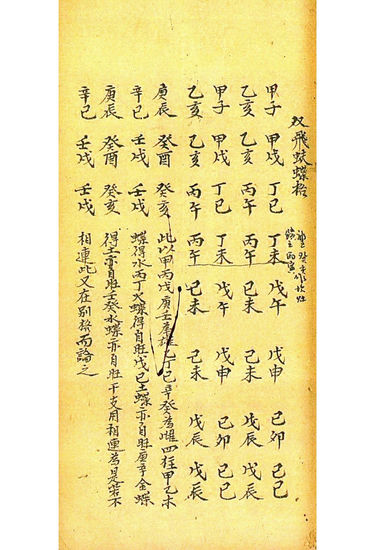 双飛蝴蝶格
甲子 甲戌 丁巳 丁未 戊午 戊申 己卯 己巳
乙亥 乙亥 丙午 丙午 己未 己未 戊辰 戊辰
甲子 甲戌 丁巳 丁未 戊午 戊申 己卯 己巳
乙亥 乙亥 丙午 丙午 己未 己未 戊辰 戊辰
庚辰 癸酉 癸亥 此以甲丙戊庚壬為雄乙丁己辛癸為雌四柱甲乙木
辛巳 壬戌 壬戌 蝶得水丙丁火蝶得自旺戊己土蝶亦自旺庚辛金蝶
庚辰 癸酉 癸亥 得土亦自旺壬癸水蝶亦自旺干支用相連為是若不
辛巳 壬戌 壬戌 相連此又在别格而論之